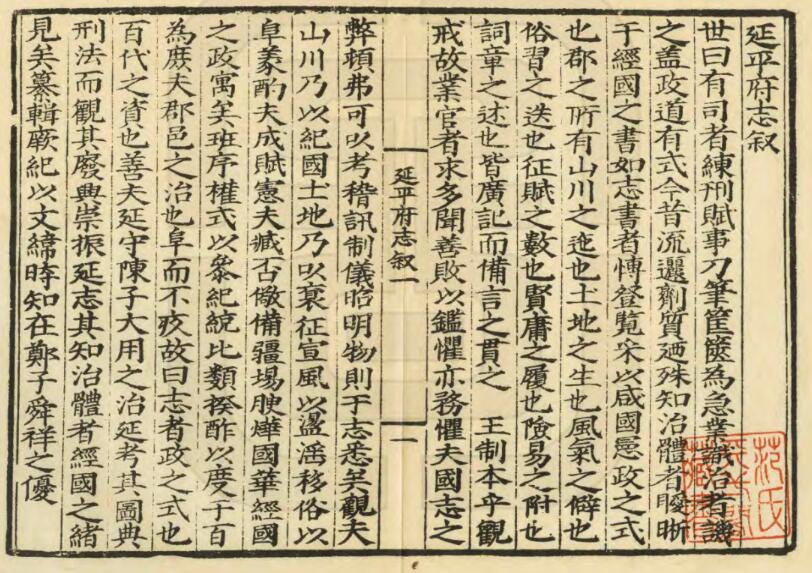 延平府志叙
世曰有司者練刑賦事刀筆筐篋為急業識治者譏
之盖政道有式今昔流邐劑質廼殊知治體者㬊晰
于經國之書如志書者愽登覧采以咸國慝政之式
也郡之所有山川之迆也土地之生也風氣之僻也
俗習之迭也征賦之數也賢庸之履也險易之附也
詞章之述也皆廣記而備言之貫之 王制本乎觀
戒故業官者求多聞善敗以鑑懼亦務懼夫國志之
延平府志叙一
一
弊頼弗可以考稽訊制儀昭明物則于志悉矣觀夫
山川乃以紀國土地乃以裒征宣風以盪滛移俗以
阜蒙酌夫成賦憲夫臧否儆備疆埸腴燁國華經國
之政寓矣班序權式以叅紀統比類揆酢以度于百
為庶夫郡邑之治也阜而不疚故曰志者政之式也
百代之資也善夫延守陳子大用之治延考其圖典
刑法而觀其廢典崇振延志其知治體者經國之緒
見矣纂輯厥紀以文緯時知在鄭子舜祥之優
范氏
藏書